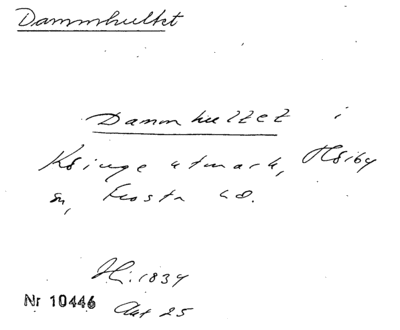 Dammhultet
Dammhultet i
Ksinge utmark, Hsiby
sn, Frosta hd.
Hi: 1839
Nr 10446 Akt 25